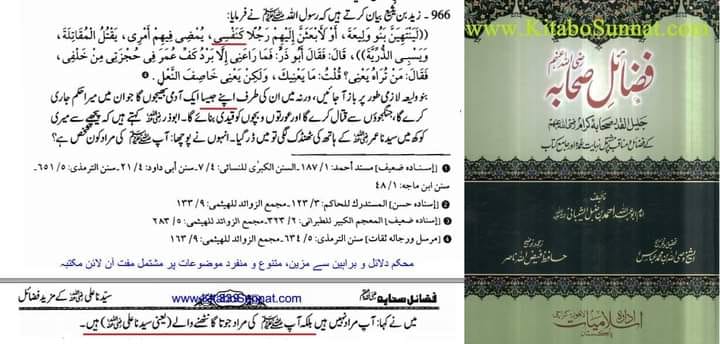 966 - زید بن یثیع بیان کرتے ہیں کہ رسول اللہ ﷺ نے فرمایا:
((لَيَنْتَهِيَنَّ بَنُو وَلِيعَةَ، أَوْ لَأَبْعَثَنَّ إِلَيْهِمْ رَجُلًا كَنَفْسِي، يُمْضِي فِيهِمْ أَمْرِي، يَقْتُلُ الْمُقَاتِلَةَ،
وَيَسْبِي الذُّرِّيَّةَ))، قَالَ: فَقَالَ أَبُو ذَرٍّ: فَمَا رَاعَنِي إِلَّا بَرْدُ كَفِّ عُمَرَ فِي حُجْزَتِي مِنْ خَلْفِي،
فَقَالَ: مَنْ تَرَاهُ يَعْنِي؟ قُلْتُ: مَا يَعْنِيكَ، وَلَكِنْ يَعْنِي خَاصِفَ النَّعْلِ. ④
بنو ولیعہ لازمی طور پر باز آ جائیں، ورنہ میں ان کی طرف اپنے جیسا ایک آدمی بھیجوں گا جو ان میں میرا حکم جاری
کرے گا، جنگجوؤں سے قتال کرے گا اور عورتوں و بچوں کو قیدی بنائے گا۔ ابوذر کہتے ہیں کہ پیچھے سے میری
کوکھ میں سیدنا عمر کے ہاتھ کی ٹھنڈک لگی تو میں ڈر گیا۔ انہوں نے پوچھا: آپ ﷺ کی مراد کون شخص ہے؟
① [اسناده ضعيف] مسند احمد: ١/١٨٧۔ السنن الكبرىٰ للنسائي: ٤/٧۔ سنن أبي داود: ٢١/٤۔ سنن الترمذي: ٦٥١/٥۔
سنن ابن ماجه: ٤٨/١
② [اسناده حسن] المستدرك للحاكم: ١٢٣/٣۔ مجمع الزوائد للهيثمي: ١٣٣/٩
③ [اسناده ضعيف] المعجم الكبير للطبراني: ٣٢٣/٢۔ مجمع الزوائد للهيثمي: ٢٨٣/٥
④ [مرسل ورجاله ثقات] سنن الترمذي: ٦٣٤/٥۔ مجمع الزوائد للهيثمي: ١٦٣/٩
محکم دلائل و براہین سے مزین، متنوع و منفرد موضوعات پر مشتمل مفت آن لائن مکتبہ
فضائل صحابہ www.KitaboSunnat.com سیدنا علی کے مزید فضائل
میں نے کہا: آپ مراد نہیں ہیں بلکہ آپ ﷺ کی مراد جوتا گانٹھنے والے (یعنی سیدنا علی) ہیں۔
www.KitaboSunnat.com
فضائل صحابہ
جلیل القدر صحابہ کرام
تالیف
امام ابو عبداللہ احمد بن حنبل الشیبانی
حافظ فیض اللہ ناصر
ادارہ اسلامیات